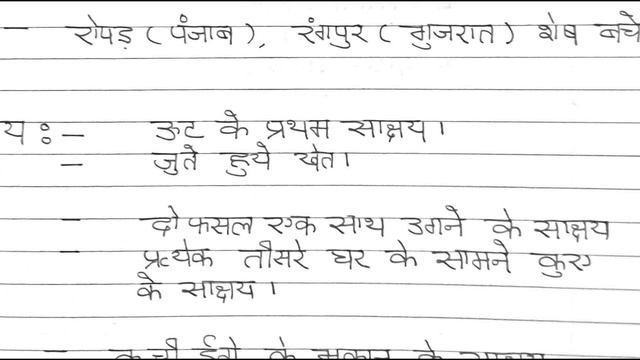 — रोपड़ (पंजाब), रंगपुर (गुजरात) शेष बचे
य :— ऊट के प्रथम साक्षय।
— जुते हुये खेत।
— दो फसल एक साथ उगने के साक्षय
— प्रत्येक तीसरे घर के सामने कुए
के साक्षय।
— कच्ची ईंटो के मकान के